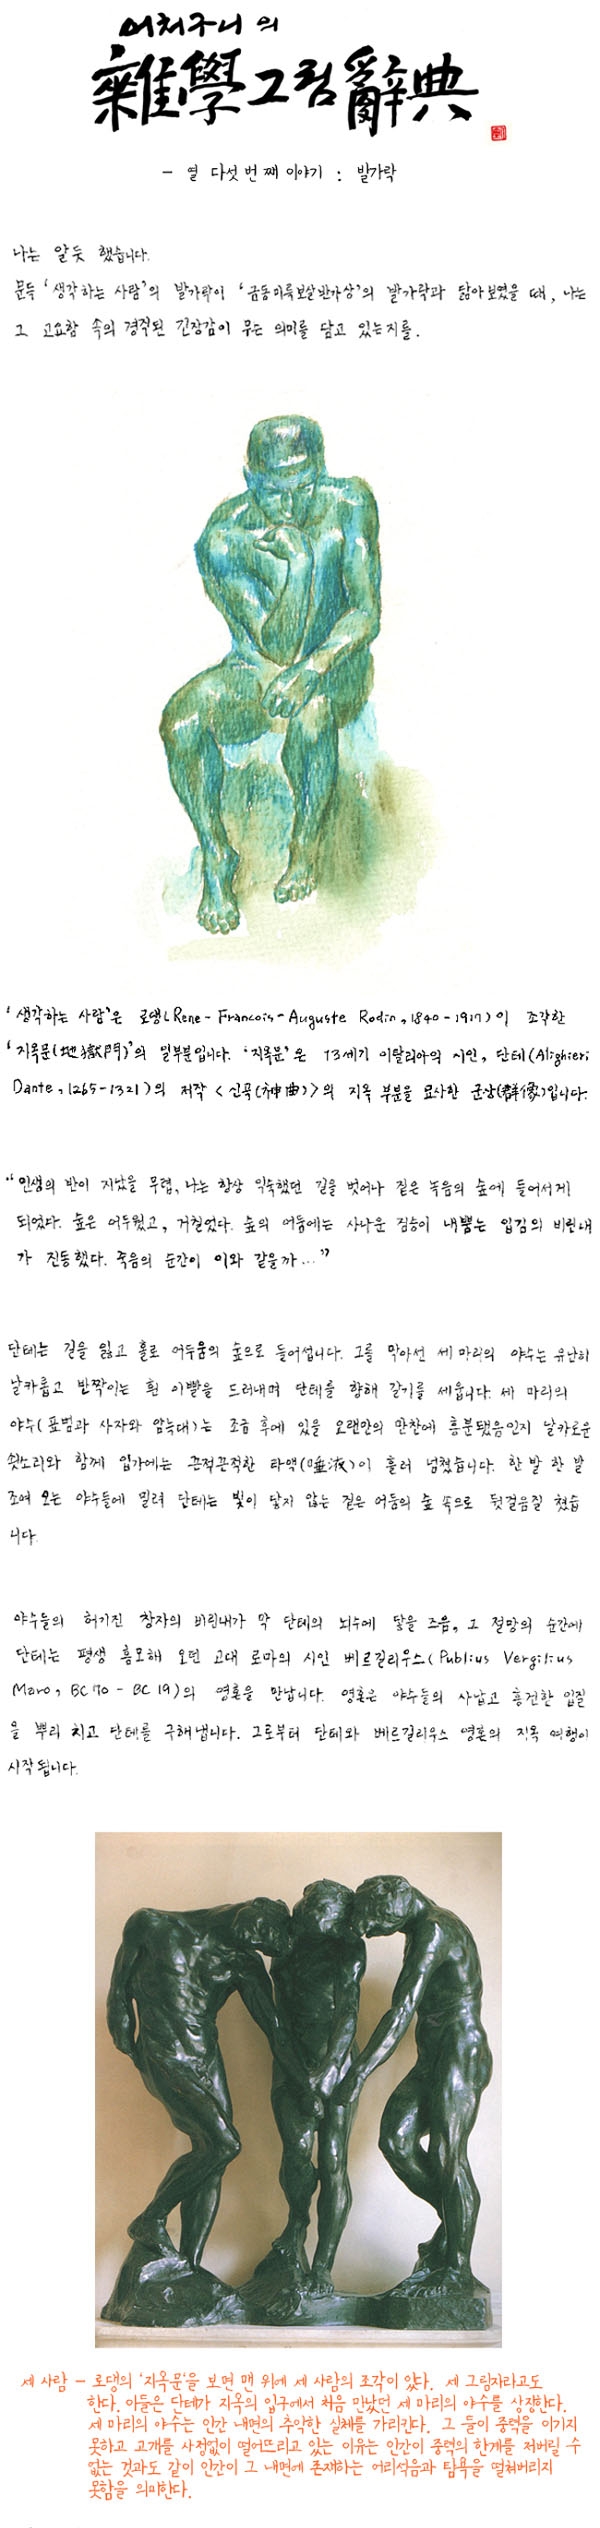 어처구니의
雜學그림辭典
- 열 다섯 번 째 이야기 : 발가락
나는 알듯 했습니다.
문득 '생각하는 사람'의 발가락이 '금동미륵보살반가상'의 발가락과 닮아보였을 때, 나는
그 고요함 속의 경직된 긴장감이 무슨 의미를 담고 있는지를.
'생각하는 사람'은 로댕(Rene-Francois-Auguste Rodin, 1840-1917)이 조각한
'지옥문(地獄門)'의 일부분입니다. '지옥문'은 13세기 이탈리아의 시인, 단테(Alighieri
Dante, 1265-1321)의 저작 <신곡(神曲)>의 지옥 부분을 묘사한 군상(群像)입니다.
"인생의 반이 지났을 무렵, 나는 항상 익숙했던 길을 벗어나 짙은 녹음의 숲에 들어서게
되었다. 숲은 어두웠고, 거칠었다. 숲의 어둠에는 사나운 짐승이 내뿜는 입김의 비린내
가 진동했다. 죽음의 순간이 이와 같을까..."
단테는 길을 잃고 홀로 어두움의 숲으로 들어섭니다. 그를 막아선 세 마리의 야수는 유난히
날카롭고 반짝이는 흰 이빨을 드러내며 단테를 향해 갈기를 세웁니다. 세 마리의
야수(표범과 사자와 암늑대)는 조금 후에 있을 오랜만의 만찬에 흥분됐음인지 날카로운
쇳소리와 함께 입가에는 끈적끈적한 타액(唾液)이 흘러 넘쳤습니다. 한 발 한 발
조여 오는 야수들에 밀려 단테는 빛이 닿지 않는 짙은 어둠의 숲 속으로 뒷걸음질 쳤습
니다.
야수들의 허기진 창자의 비린내가 막 단테의 뇌수에 닿을 즈음, 그 절망의 순간에
단테는 평생 흠모해 오던 고대 로마의 시인 베르길리우스(Publius Vergilius
Maro, BC 70 - BC 19)의 영혼을 만납니다. 영혼은 야수들의 사납고 흥건한 입질
을 뿌리 치고 단테를 구해냅니다. 그로부터 단테와 베르길리우스 영혼의 지옥 여행이
시작됩니다.
세 사람 - 로댕의 '지옥문'을 보면 맨 위에 세 사람의 조각이 있다. 세 그림자라고도
한다. 이들은 단테가 지옥의 입구에서 처음 만났던 세 마리의 야수를 상징한다.
세 마리의 야수는 인간 내면의 추악한 실체를 가리킨다. 그 들이 중력을 이기지
못하고 고개를 사정없이 떨어뜨리고 있는 이유는 인간이 중력의 한계를 저버릴 수
없는 것과도 같이 인간이 그 내면에 존재하는 어리석음과 탐욕을 떨쳐버리지
못함을 의미한다.